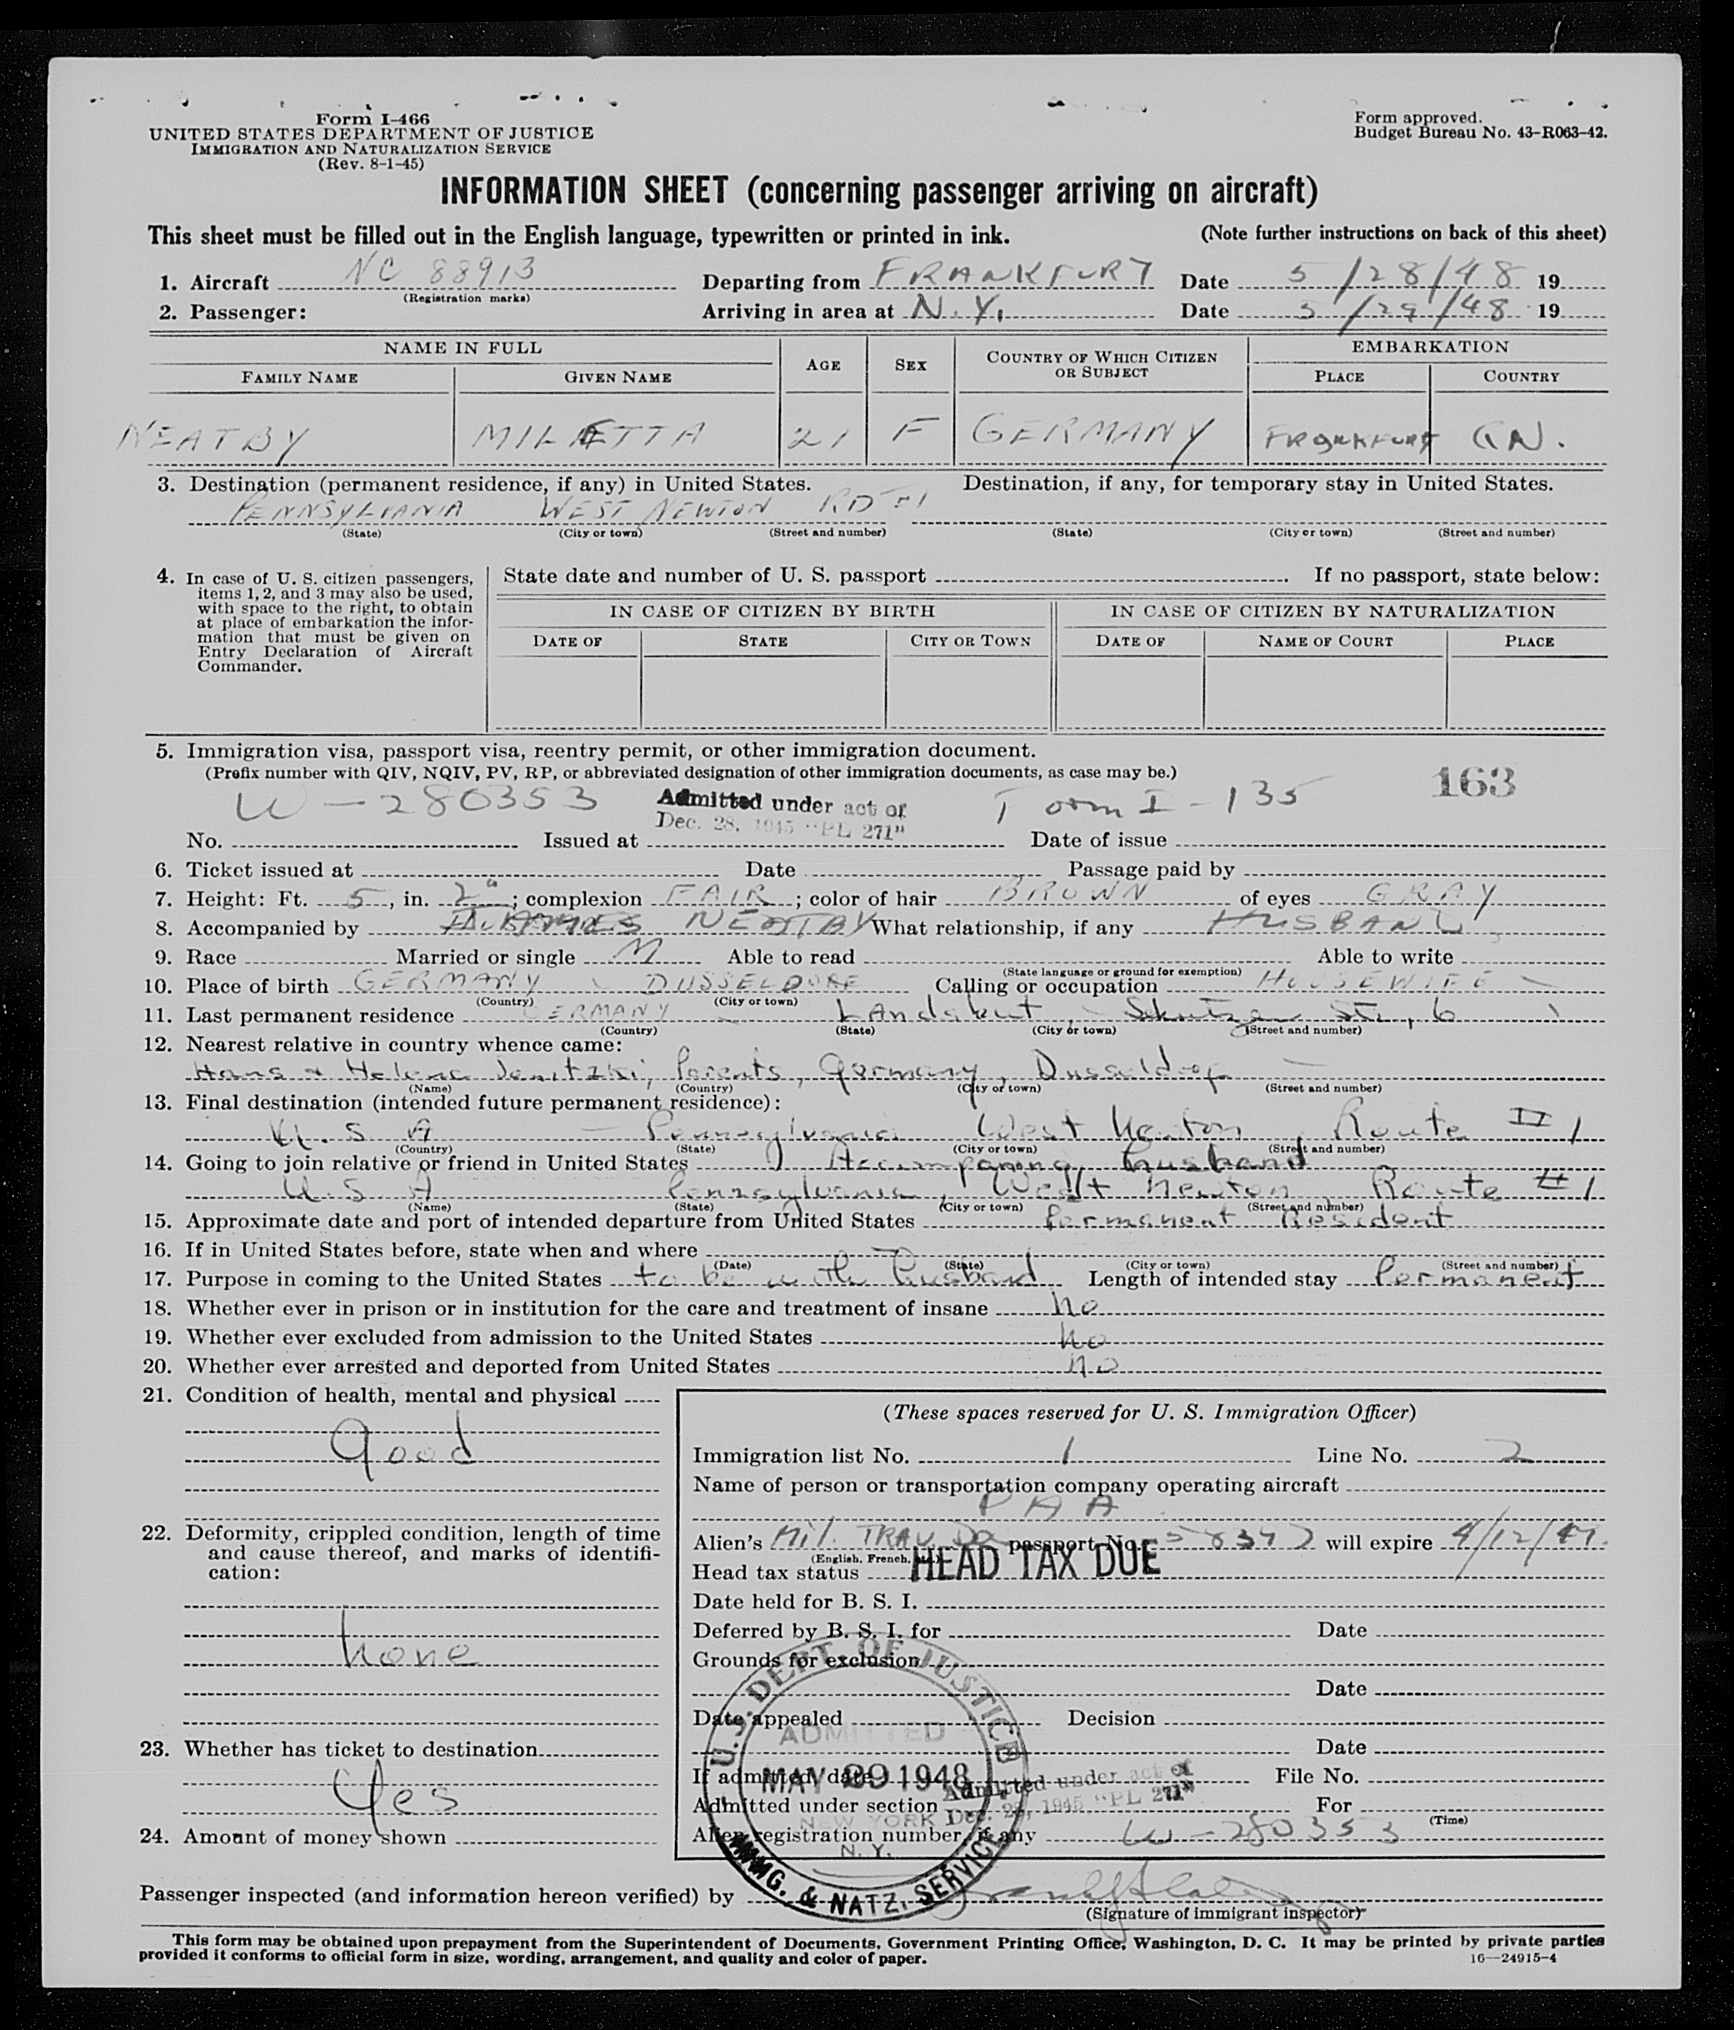 Form I-466
UNITED STATES DEPARTMENT OF JUSTICE
IMMIGRATION AND NATURALIZATION SERVICE
(Rev. 8-1-45)
Form approved.
Budget Bureau No. 43-R063-42.
INFORMATION SHEET (concerning passenger arriving on aircraft)
This sheet must be filled out in the English language, typewritten or printed in ink. (Note further instructions on back of this sheet)
1. Aircraft NC 88913 Departing from FRANKFURT Date 5/28/48 19
(Registration marks)
2. Passenger: Arriving in area at N.Y. Date 5/29/48 19
NAME IN FULL AGE SEX COUNTRY OF WHICH CITIZEN OR SUBJECT EMBARKATION
FAMILY NAME GIVEN NAME PLACE COUNTRY
NEATBY MILETTA 21 F GERMANY FRANKFURT GN.
3. Destination (permanent residence, if any) in United States. Destination, if any, for temporary stay in United States.
PENNSYLVANIA WEST NEWTON RD #1
(State) (City or town) (Street and number) (State) (City or town) (Street and number)
4. In case of U. S. citizen passengers,
items 1, 2, and 3 may also be used,
with space to the right, to obtain
at place of embarkation the infor-
mation that must be given on
Entry Declaration of Aircraft
Commander.
State date and number of U. S. passport . If no passport, state below:
IN CASE OF CITIZEN BY BIRTH IN CASE OF CITIZEN BY NATURALIZATION
DATE OF STATE CITY OR TOWN DATE OF NAME OF COURT PLACE
5. Immigration visa, passport visa, reentry permit, or other immigration document.
(Prefix number with QIV, NQIV, PV, RP, or abbreviated designation of other immigration documents, as case may be.)
163
W-280353 Admitted under act of Form I-135
Dec. 28, 1945 "PL 271"
No. Issued at Date of issue
6. Ticket issued at Date Passage paid by
7. Height: Ft. 5, in. 2"; complexion FAIR; color of hair BROWN of eyes GRAY
8. Accompanied by NEATBY What relationship, if any HUSBAND
9. Race Married or single M Able to read Able to write
(State language or ground for exemption)
10. Place of birth GERMANY DUSSELDORF Calling or occupation HOUSEWIFE
(Country) (City or town)
11. Last permanent residence GERMANY Landshut, Str., 6
(Country) (State) (City or town) (Street and number)
12. Nearest relative in country whence came:
Hans & Helena Parents, Germany, Dusseldorf
(Name) (Country) (City or town) (Street and number)
13. Final destination (intended future permanent residence):
U. S. A Pennsylvania West Newton, Route #1
(Country) (State) (City or town) (Street and number)
14. Going to join relative or friend in United States Accompaning husband
U. S. A Pennsylvania, West Newton, Route #1
(Name) (State) (City or town) (Street and number)
15. Approximate date and port of intended departure from United States Permanent Resident
16. If in United States before, state when and where
(Date) (State) (City or town) (Street and number)
17. Purpose in coming to the United States to be with husband Length of intended stay Permanent
18. Whether ever in prison or in institution for the care and treatment of insane no
19. Whether ever excluded from admission to the United States no
20. Whether ever arrested and deported from United States no
21. Condition of health, mental and physical
Good
22. Deformity, crippled condition, length of time
and cause thereof, and marks of identifi-
cation:
none
23. Whether has ticket to destination
Yes
24. Amount of money shown
(These spaces reserved for U. S. Immigration Officer)
Immigration list No. 1 Line No. 2
Name of person or transportation company operating aircraft
PAA
Alien's Mil. TRAV. passport No. 58347 will expire 4/12/49.
(English, French, etc.)
Head tax status HEAD TAX DUE
Date held for B. S. I.
Deferred by B. S. I. for Date
Grounds for exclusion
Date
Date appealed Decision
Date
If admitted, date File No.
Admitted under section For
(Time)
Alien registration number, if any W-280353
U. S. DEPT. OF JUSTICE
ADMITTED
MAY 29 1948
NEW YORK
N. Y.
IMMIG. & NATZ. SERVICE
Admitted under act of
Dec. 28, 1945 "PL 271"
Passenger inspected (and information hereon verified) by
(Signature of immigrant inspector)
This form may be obtained upon prepayment from the Superintendent of Documents, Government Printing Office, Washington, D. C. It may be printed by private parties
provided it conforms to official form in size, wording, arrangement, and quality and color of paper. 16—24915-4